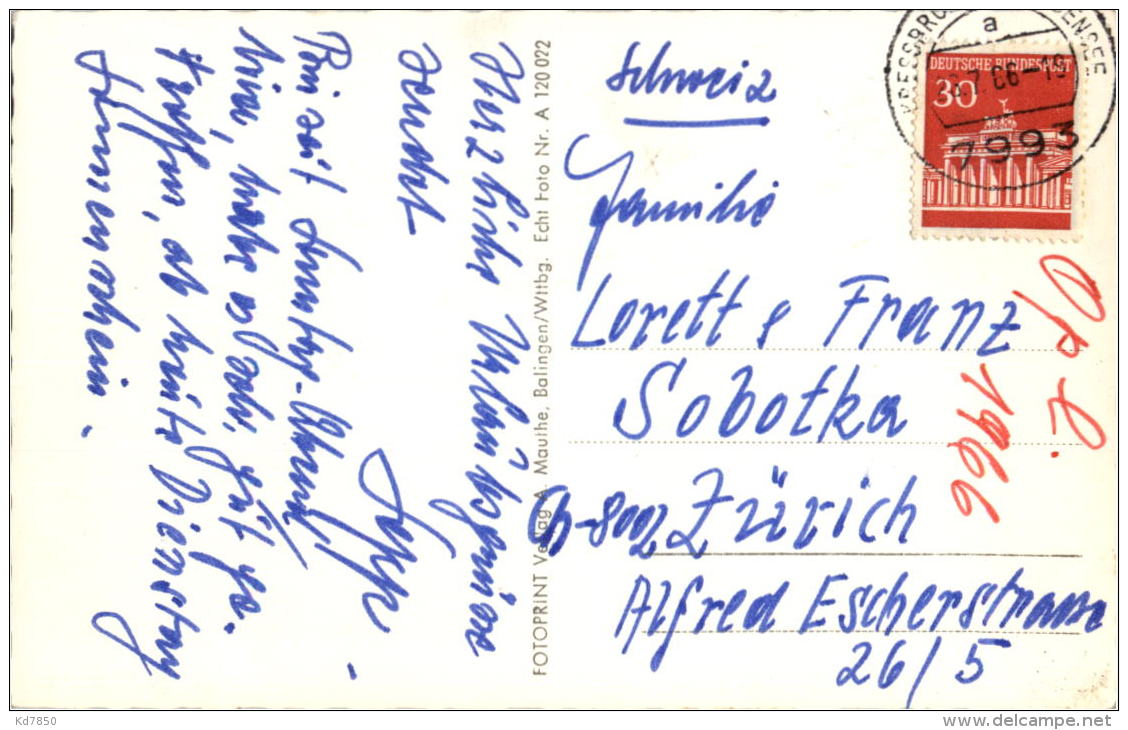 Herzliche Urlaubsgrüsse
sendet
Bin seit Samstag-Abend
hier, habe es sehr gut ge-
troffen, ab heute Dienstag
Sonnenschein.
FOTOPRINT Verlag A. Mauthe, Balingen/Wttbg. Echt Foto Nr. A 120 022
Schweiz
Familie
Lorett & Franz
Sobotka
CH-8002 Zürich
Alfred Escherstrasse
26/5
DEUTSCHE BUNDESPOST
30
a
26.7.66-19
7993
1966
Kd7850
www.delcampe.net